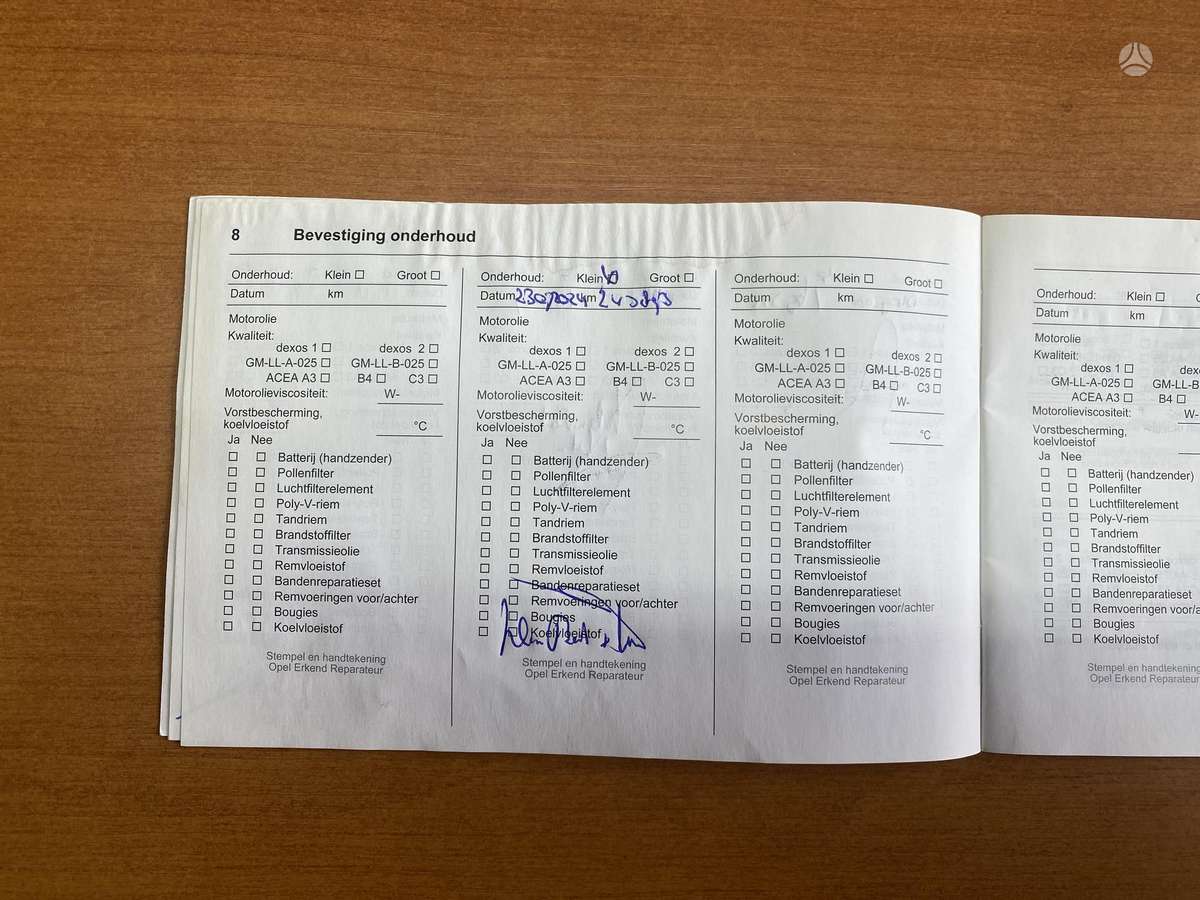 8 Bevestiging onderhoud
Onderhoud: Klein Groot
Datum km
Motorolie
Kwaliteit:
dexos 1 dexos 2
GM-LL-A-025 GM-LL-B-025
ACEA A3 B4 C3
Motorolieviscositeit: W-
Vorstbescherming,
koelvloeistof °C
Ja Nee
Batterij (handzender)
Pollenfilter
Luchtfilterelement
Poly-V-riem
Tandriem
Brandstoffilter
Transmissieolie
Remvloeistof
Bandenreparatieset
Remvoeringen voor/achter
Bougies
Koelvloeistof
Stempel en handtekening
Opel Erkend Reparateur
Onderhoud: Klein Groot
Datum
Motorolie
Kwaliteit:
dexos 1 dexos 2
GM-LL-A-025 GM-LL-B-025
ACEA A3 B4 C3
Motorolieviscositeit: W-
Vorstbescherming,
koelvloeistof °C
Ja Nee
Batterij (handzender)
Pollenfilter
Luchtfilterelement
Poly-V-riem
Tandriem
Brandstoffilter
Transmissieolie
Remvloeistof
Bandenreparatieset
Remvoeringen voor/achter
Bougies
Koelvloeistof
Stempel en handtekening
Opel Erkend Reparateur
Onderhoud: Klein Groot
Datum km
Motorolie
Kwaliteit:
dexos 1 dexos 2
GM-LL-A-025 GM-LL-B-025
ACEA A3 B4 C3
Motorolieviscositeit: W-
Vorstbescherming,
koelvloeistof °C
Ja Nee
Batterij (handzender)
Pollenfilter
Luchtfilterelement
Poly-V-riem
Tandriem
Brandstoffilter
Transmissieolie
Remvloeistof
Bandenreparatieset
Remvoeringen voor/achter
Bougies
Koelvloeistof
Stempel en handtekening
Opel Erkend Reparateur
Onderhoud: Klein
Datum km
Motorolie
Kwaliteit:
dexos 1
GM-LL-A-025 GM-LL-B
ACEA A3 B4
Motorolieviscositeit: W-
Vorstbescherming,
koelvloeistof
Ja Nee
Batterij (handzender)
Pollenfilter
Luchtfilterelement
Poly-V-riem
Tandriem
Brandstoffilter
Transmissieolie
Remvloeistof
Bandenreparatieset
Remvoeringen voor/
Bougies
Koelvloeistof
Stempel en handtekening
Opel Erkend